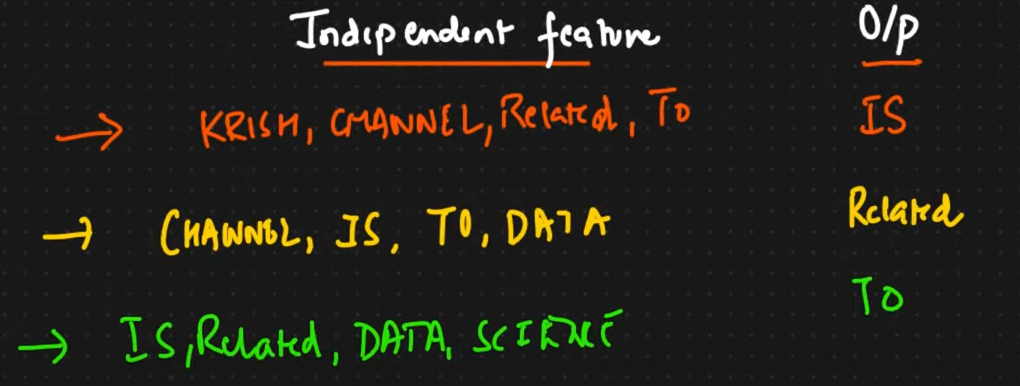 Independent feature O/p
→ KRISH, CHANNEL, Related, To IS
→ CHANNEL, IS, TO, DATA Related
→ IS, Related, DATA, SCIENCE TO